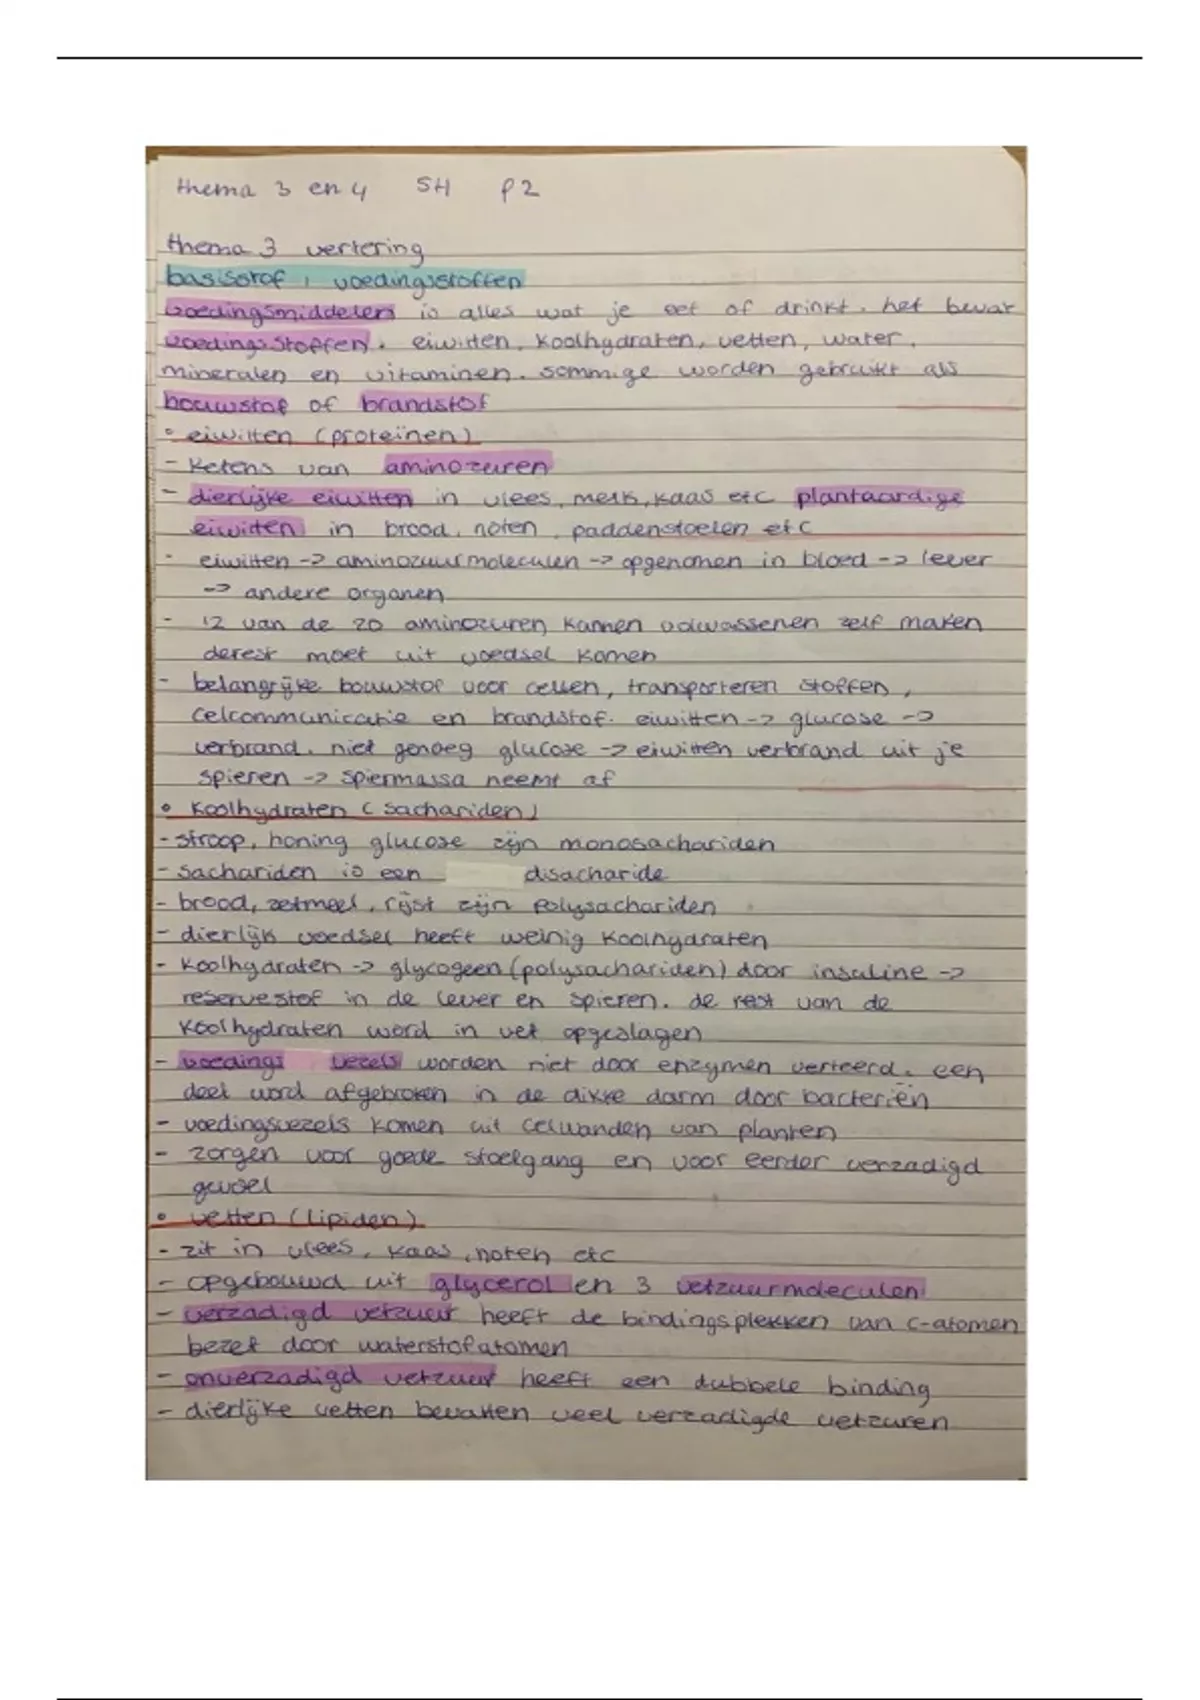 thema 3 en 4 5H p2
thema 3 vertering
basisstof 1 voedingsstoffen
voedingsmiddelen is alles wat je eet of drinkt. het bevat
voedingsstoffen. eiwitten, koolhydraten, vetten, water,
mineralen en vitaminen. sommige worden gebruikt als
bouwstof of brandstof
• eiwitten (proteïnen)
- ketens van aminozuren
- dierlijke eiwitten in vlees, melk, kaas etc plantaardige
eiwitten in brood, noten, paddenstoelen etc
- eiwitten -> aminozuurmoleculen -> opgenomen in bloed -> lever
-> andere organen
- 12 van de 20 aminozuren kunnen volwassenen zelf maken
derest moet uit voedsel komen
- belangrijke bouwstof voor cellen, transporteren stoffen,
celcommunicatie en brandstof. eiwitten -> glucose ->
verbrand. niet genoeg glucose -> eiwitten verbrand uit je
spieren -> spiermassa neemt af
• koolhydraten (sachariden)
- stroop, honing glucose zijn monosachariden
- sachariden is een disacharide
- brood, zetmeel, rijst zijn polysachariden
- dierlijk voedsel heeft weinig koolhydraten
- koolhydraten -> glycogeen (polysachariden) door insuline ->
reservestof in de lever en spieren. de rest van de
koolhydraten word in vet opgeslagen
- voedings vezels worden niet door enzymen verteerd. een
deel word afgebroken in de dikke darm door bacteriën
- voedingsvezels komen uit celwanden van planten
- zorgen voor goede stoelgang en voor eerder verzadigd
gevoel
• vetten (lipiden)
- zit in vlees, kaas, noten etc
- opgebouwd uit glycerol en 3 vetzuurmoleculen
- verzadigd vetzuur heeft de bindingsplekken van c-atomen
bezet door waterstofatomen
- onverzadigd vetzuur heeft een dubbele binding
- dierlijke vetten bevatten veel verzadigde vetzuren